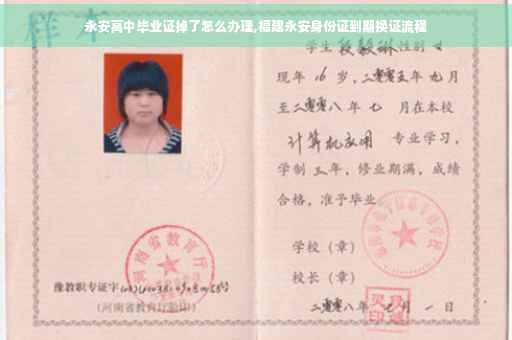 永安高中毕业证掉了怎么办理,福建永安身份证到期换证流程
样本
学生段毅琳性别女
现年16岁,二零零五年九月
至二零零八年七月在本校
计算机应用专业学习,
学制三年,修业期满,成绩
合格,准予毕业
学校(章)
校长(章)
二零零八年 月一日
河南省教育厅
豫教职专证字
(河南省教育厅验印)